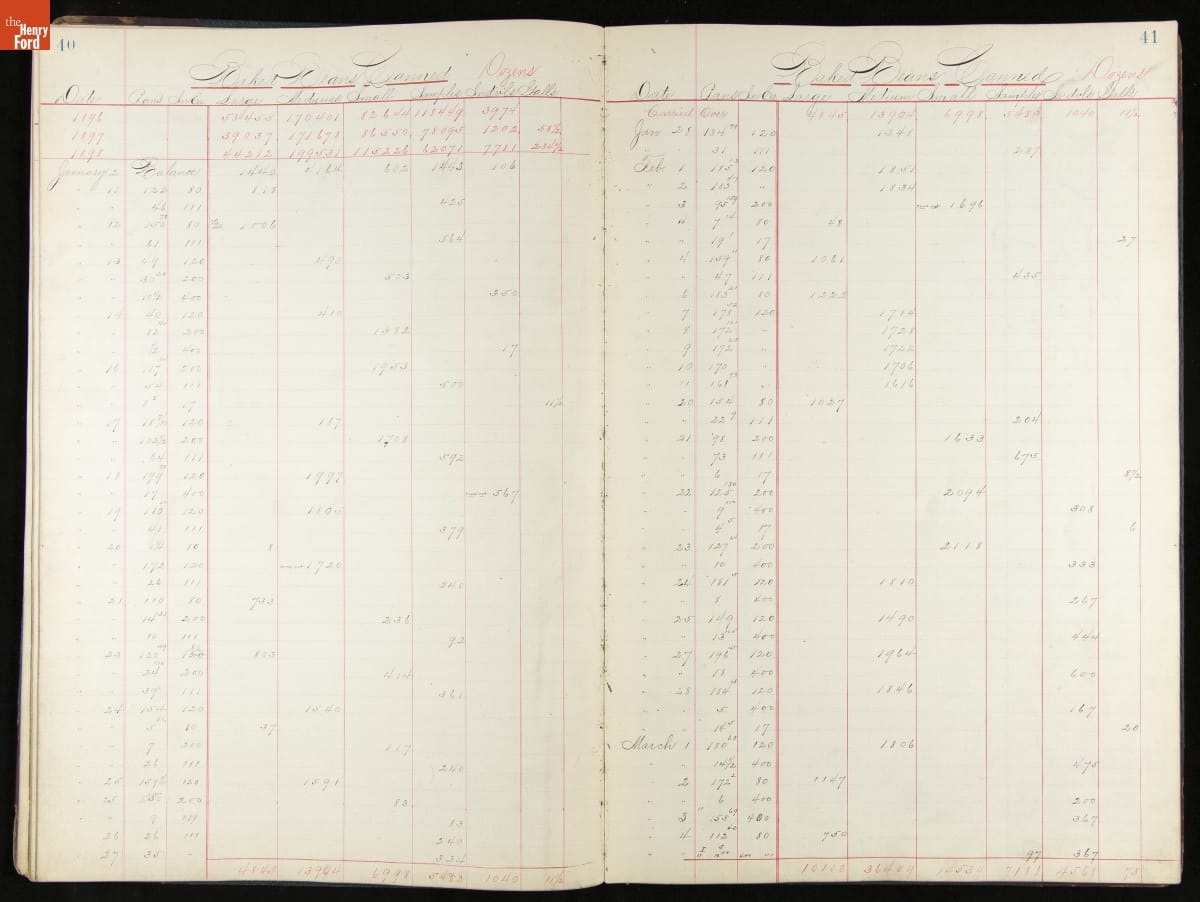 the
Henry
Ford
40
Baked Beans Canned Dozens
Date Pans In Ea Large Mediums Small Samples Individls Galls
1896 53455 170401 82644 118449 3974
1897 39037 171678 86550 78095 1202 58½
1898 44212 199531 115226 62071 7781 234½
January 2 Balance 1440 602 1443 106
" 11 122 80 818
" " 46 111 425
" 12 150 80 1006
" " 61 111 564
" 13 49 120 490
" " 30 200 503
" " 10½ 400 350
" 14 40 120 410
" " 82 200 1382
" " ½ 400 17
" 16 117 200 1953
" " 54 111 500
" " 8 17 11½
" 17 120 187
" " 102½ 200 1708
" " 64 111 592
" 18 199 120 1997
" " 17 400 567
" 19 180 120 1805
" " 41 111 379
" 20 80 8
" " 172 120 1720
" " 26 111 240
" 21 110 80 733
" " 14 200 236
" " 10 111 92
" 23 120 803
" " 24 200 414
" " 39 111 361
" 24 154 120 1540
" " 5 80 37
" " 7 200 117
" " 26 111 240
" 25 159 120 1591
" 25 200 83
" " 9 111 83
" 26 26 111 240
" 27 35 " 324
4845 13904 6998 5483 1040 11½
41
Baked Beans Canned Dozens
Date Pans In Ea Large Medium Small Samples Individls Galls
Carried Over 4845 13904 6998 5483 1040 11½
Jan 28 134 120 1348
" " 31 111 287
Feb 1 185 120 1851
" 2 183 " 1834
" 3 95 200 1696
" 4 7 80 48
" " 19 17 27
" 4 159 80 1061
" " 47 111 435
" 6 183 80 1222
" 7 178 120 1784
" 8 172 " 1728
" 9 172 " 1722
" 10 170 " 1706
" 11 161 " 1616
" 20 154 80 1027
" " 22 111 204
" 21 98 200 1633
" " 73 111 675
" " 6 17 8½
" 22 125 200 2094
" " 9 400 308
" " 4 17 6
" 23 127 200 2118
" " 10 400 333
" 24 181 120 1810
" " 8 400 267
" 25 149 120 1490
" " 13 400 444
" 27 196 120 1964
" " 18 400 600
" 28 184 120 1846
" " 5 400 167
" " 14 17 20
March 1 180 120 1806
" " 14½ 400 475
" 2 172 80 1147
" " 6 400 200
" 3 400 367
" 4 112 80 750
97 367
10100 36409 14530 4563 73